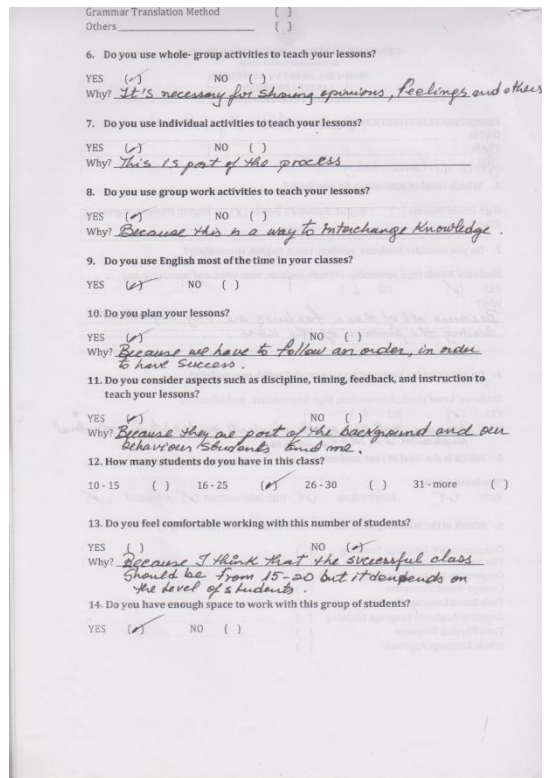 Grammar Translation Method ( )
Others ____________ ( )
6. Do you use whole- group activities to teach your lessons?
YES (✓) NO ( )
Why? It's necessary for sharing opinions, feelings and others
7. Do you use individual activities to teach your lessons?
YES (✓) NO ( )
Why? This is part of the process
8. Do you use group work activities to teach your lessons?
YES (✓) NO ( )
Why? Because this is a way to interchange knowledge.
9. Do you use English most of the time in your classes?
YES (✓) NO ( )
10. Do you plan your lessons?
YES (✓) NO ( )
Why? Because we have to follow an order, in order
to have success.
11. Do you consider aspects such as discipline, timing, feedback, and instruction to
teach your lessons?
YES (✓) NO ( )
Why? Because they are part of the background and our
behaviour students and me.
12. How many students do you have in this class?
10 - 15 ( ) 16 - 25 (✓) 26 - 30 ( ) 31 - more ( )
13. Do you feel comfortable working with this number of students?
YES ( ) NO (✓)
Why? Because I think that the successful class
should be from 15-20 but it depends on
the level of students.
14. Do you have enough space to work with this group of students?
YES (✓) NO ( )